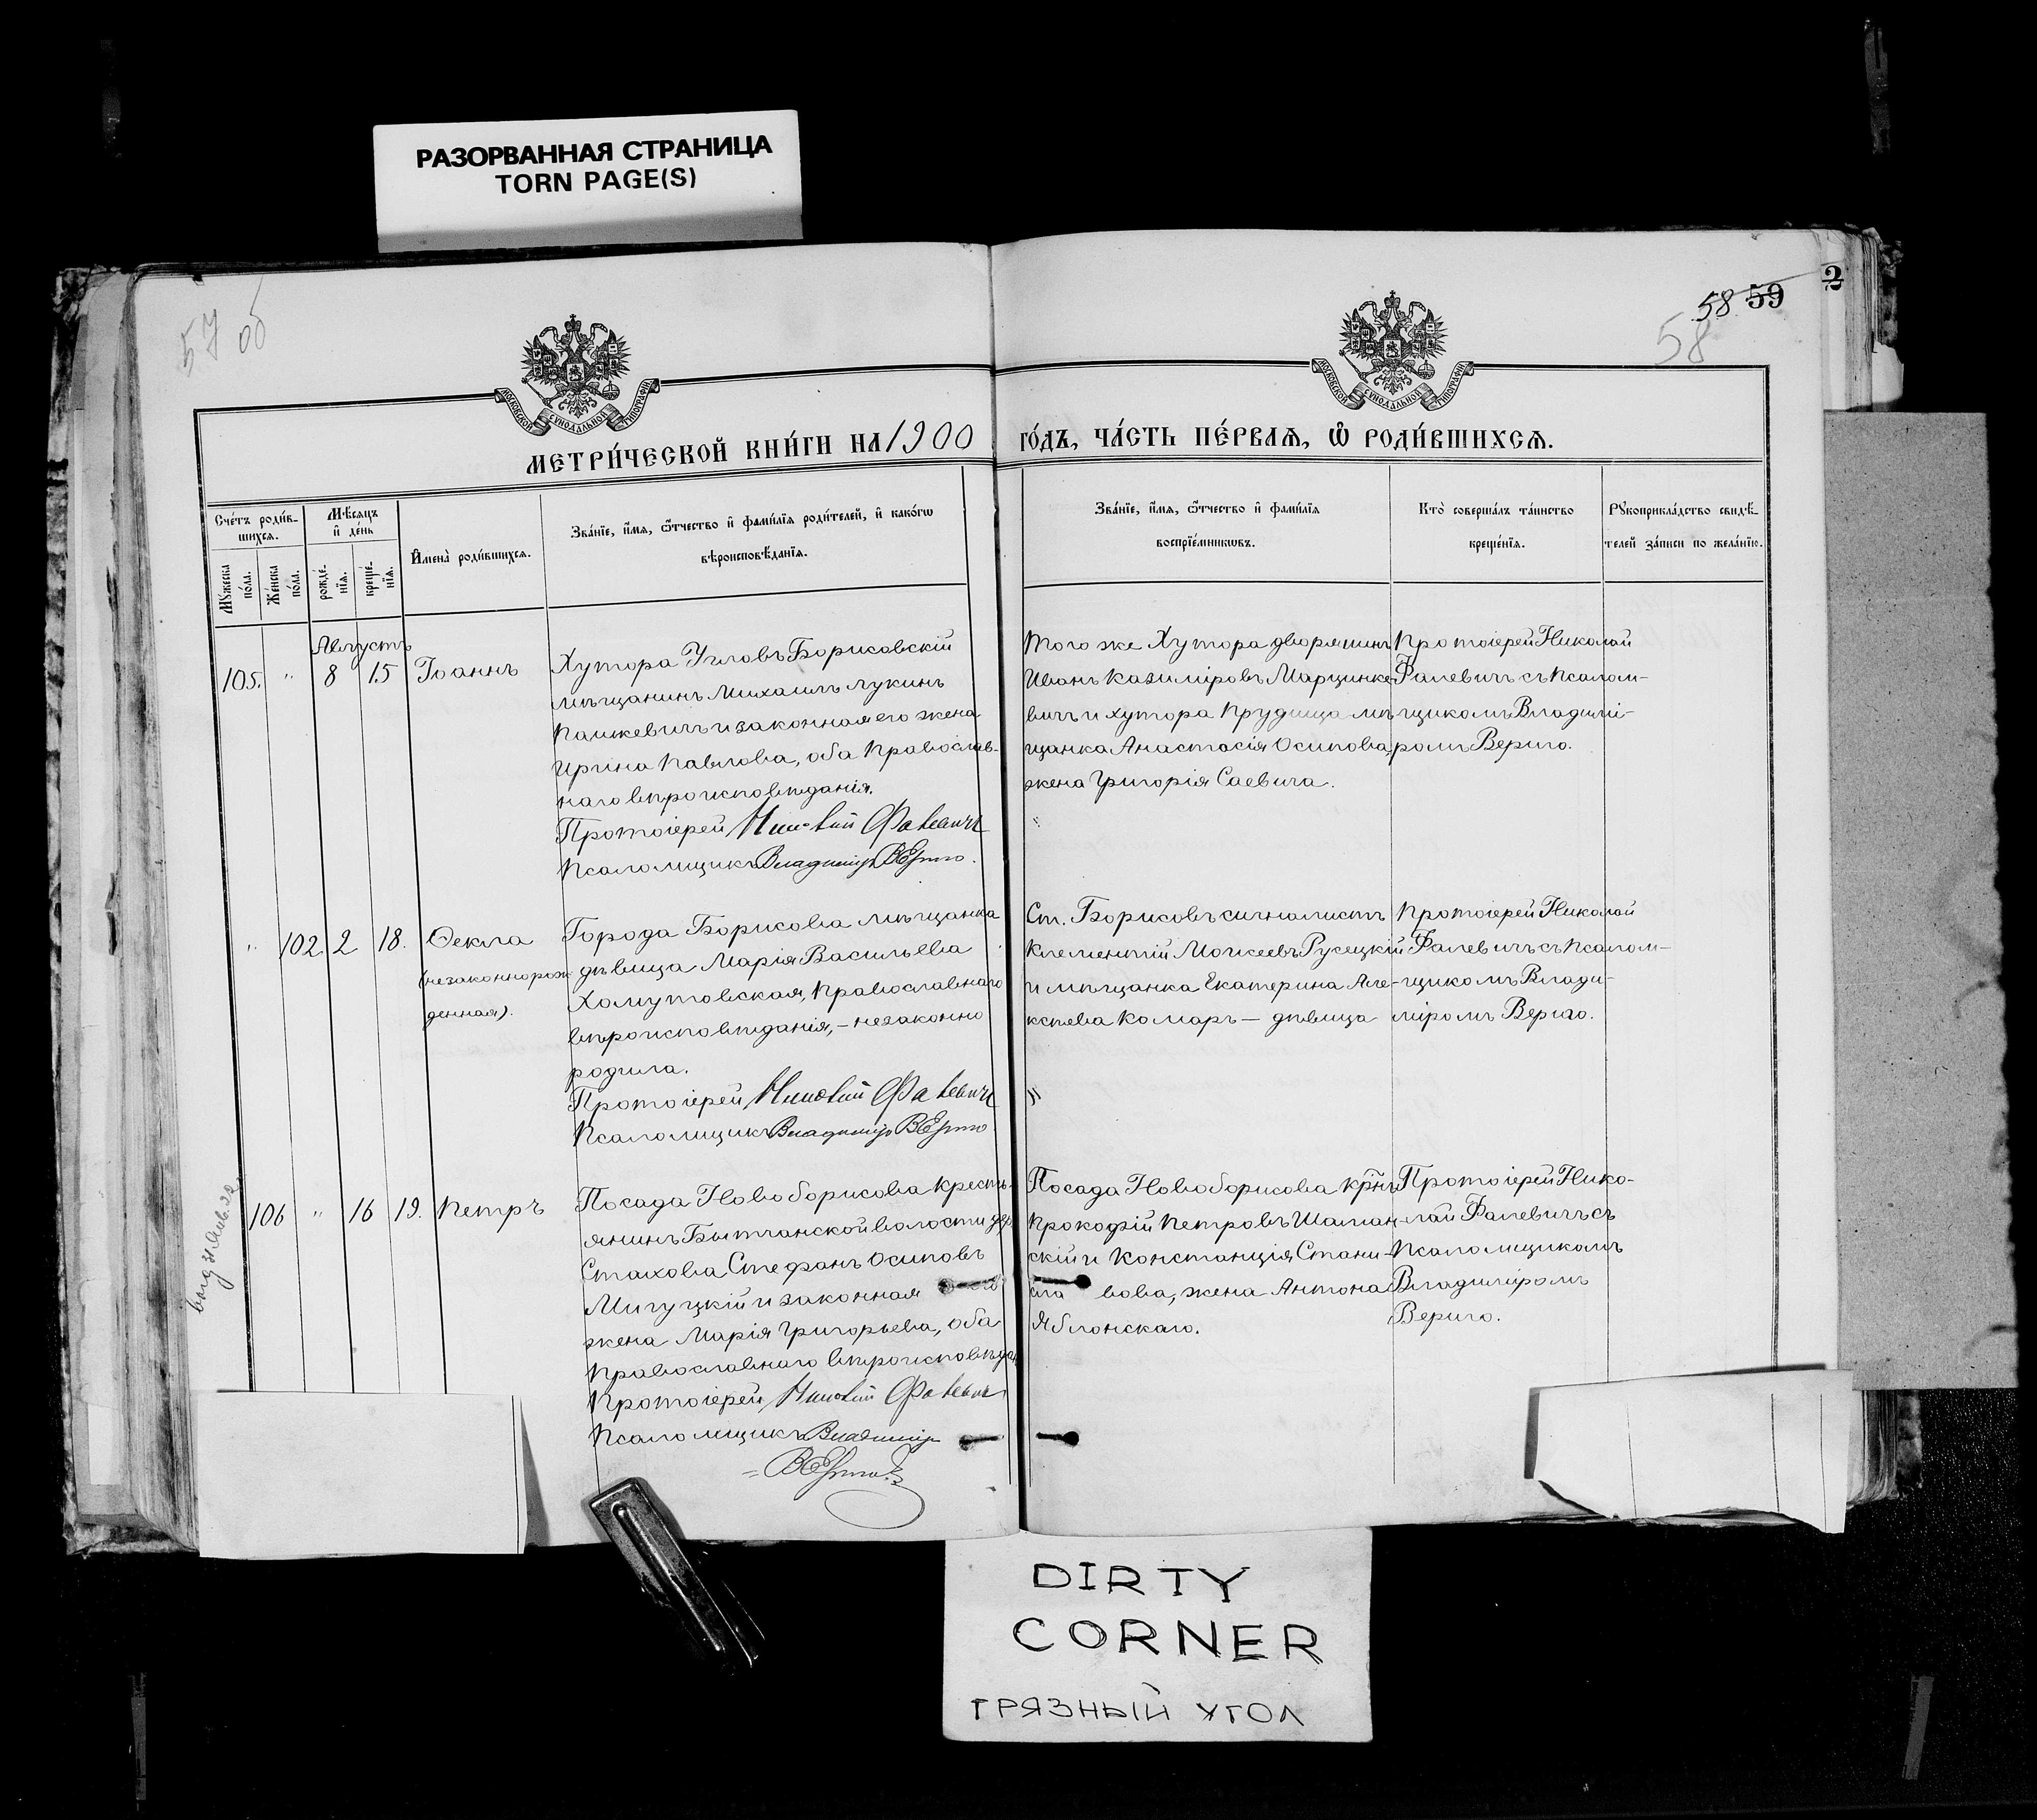 РАЗОРВАННАЯ СТРАНИЦА
TORN PAGE(S)
57 об
58 59
2
58
МОСКОВСКОЙ СѴНОДАЛЬНОЙ ТИПОГРАФІИ
МОСКОВСКОЙ СѴНОДАЛЬНОЙ ТИПОГРАФІИ
МЕТРИ́ЧЕСКОЙ КНИ́ГИ НА 1900
ГО́ДЪ, ЧА́СТЬ ПЕ́РВАЯ, Ѽ РОДИ́ВШИХСЯ.
Сче́тъ роди́в-
шихся.
Мѣ́сяцъ
и҆ де́нь
Мꙋ́жеска
по́ла.
Же́нска
по́ла.
рожде́-
нїя.
креще́-
нїя.
И҆мена̀ роди́вшихся.
Зва́нїе, и҆́мя, ѻ҆́тчество и҆ фами́лїя роди́телей, и҆ како́гѡ
вѣроисповѣ́данїя.
Зва́нїе, и҆́мя, ѻ҆́тчество и҆ фами́лїя
воспрїе́мникѡвъ.
Кто̀ соверша́лъ та́инство
креще́нїя.
Рꙋкоприкла́дство свидѣ́-
телей за́писи по жела́нїю.
Августъ
105. " 8 15 Іоаннъ
Хутора Угловъ Борисовскій
мѣщанинъ Михаилъ Лукинъ
Пашкевичъ и законная его жена
Ирина Павлова, оба Православ-
наго вѣроисповѣданія.
Протоіерей Николай Фалевичъ
Псаломщикъ Владиміръ Вериго.
Того же Хутора дворянинъ
Иванъ Казиміровъ Марцинке-
вичъ и хутора Прудища мѣ-
щанка Анастасія Осипова,
жена Григорія Саевича.
"
Протоіерей Николай
Фалевичъ съ Псалом-
щикомъ Владимі-
ромъ Вериго.
" 102. 2 18. Ѳекла
(незаконнорож
денная).
Города Борисова мѣщанка
дѣвица Марія Васильева
Хомутовская, Православнаго
вѣроисповѣданія, – незаконно
родила.
Протоіерей Николай Фалевичъ
Псаломщикъ Владиміръ Вериго
Ст. Борисовъ сигналистъ
Клементій Моисеевъ Русецкій
и мѣщанка Екатерина Але-
ксѣева Комаръ – дѣвица
"
Протоіерей Николай
Фалевичъ съ Псалом-
щикомъ Влади-
міромъ Вериго.
106 " 16 19. Петръ
Посада Новоборисова Кресть-
янинъ Бытчанской волости дер.
Стахова Стефанъ Осиповъ
Мигуцкій и законная его
жена Марія Григорьева, оба
Православнаго вѣроисповѣдан.
Протоіерей Николай Фалевичъ
Псаломщикъ Владиміръ
Вериго.
Посада Новоборисова кр̃нъ
Прокофій Петровъ Шаман-
скій и Констанція Стани-
сла вова, жена Антона
Яблонскаго.
Протоіерей Нико-
лай Фалевичъ съ
Псаломщикомъ
Владиміромъ
Вериго.
DIRTY
CORNER
ГРЯЗНЫЙ УГОЛ